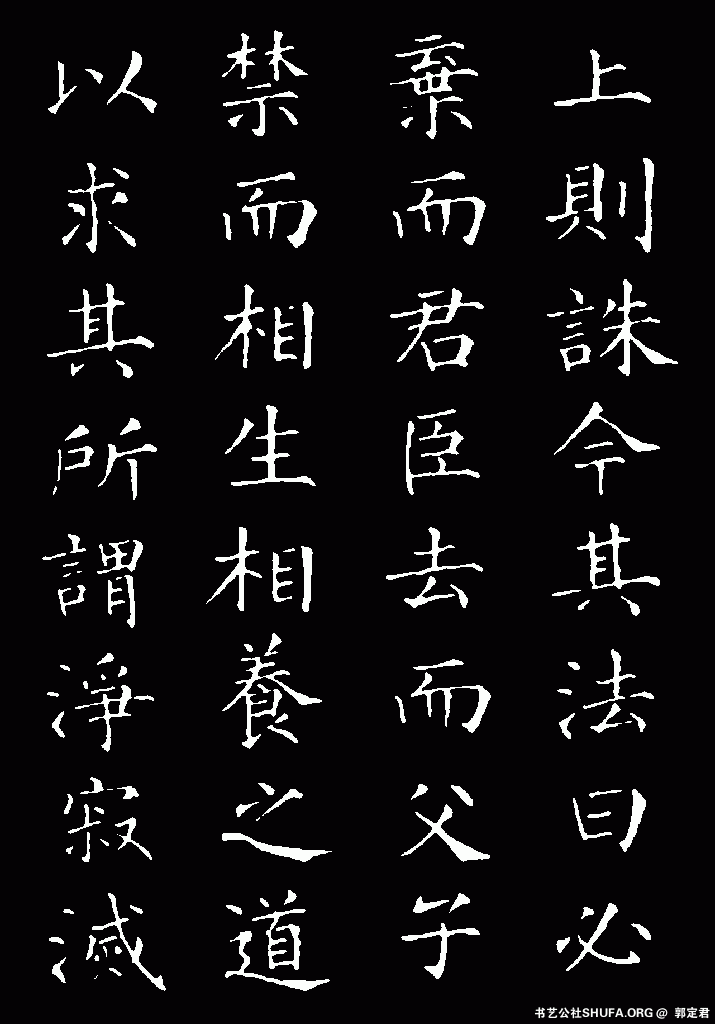 上則誅今其法曰必
棄而君臣去而父子
禁而相生相養之道
以求其所謂淨寂滅
书艺公社SHUFA.ORG @ 郭定君